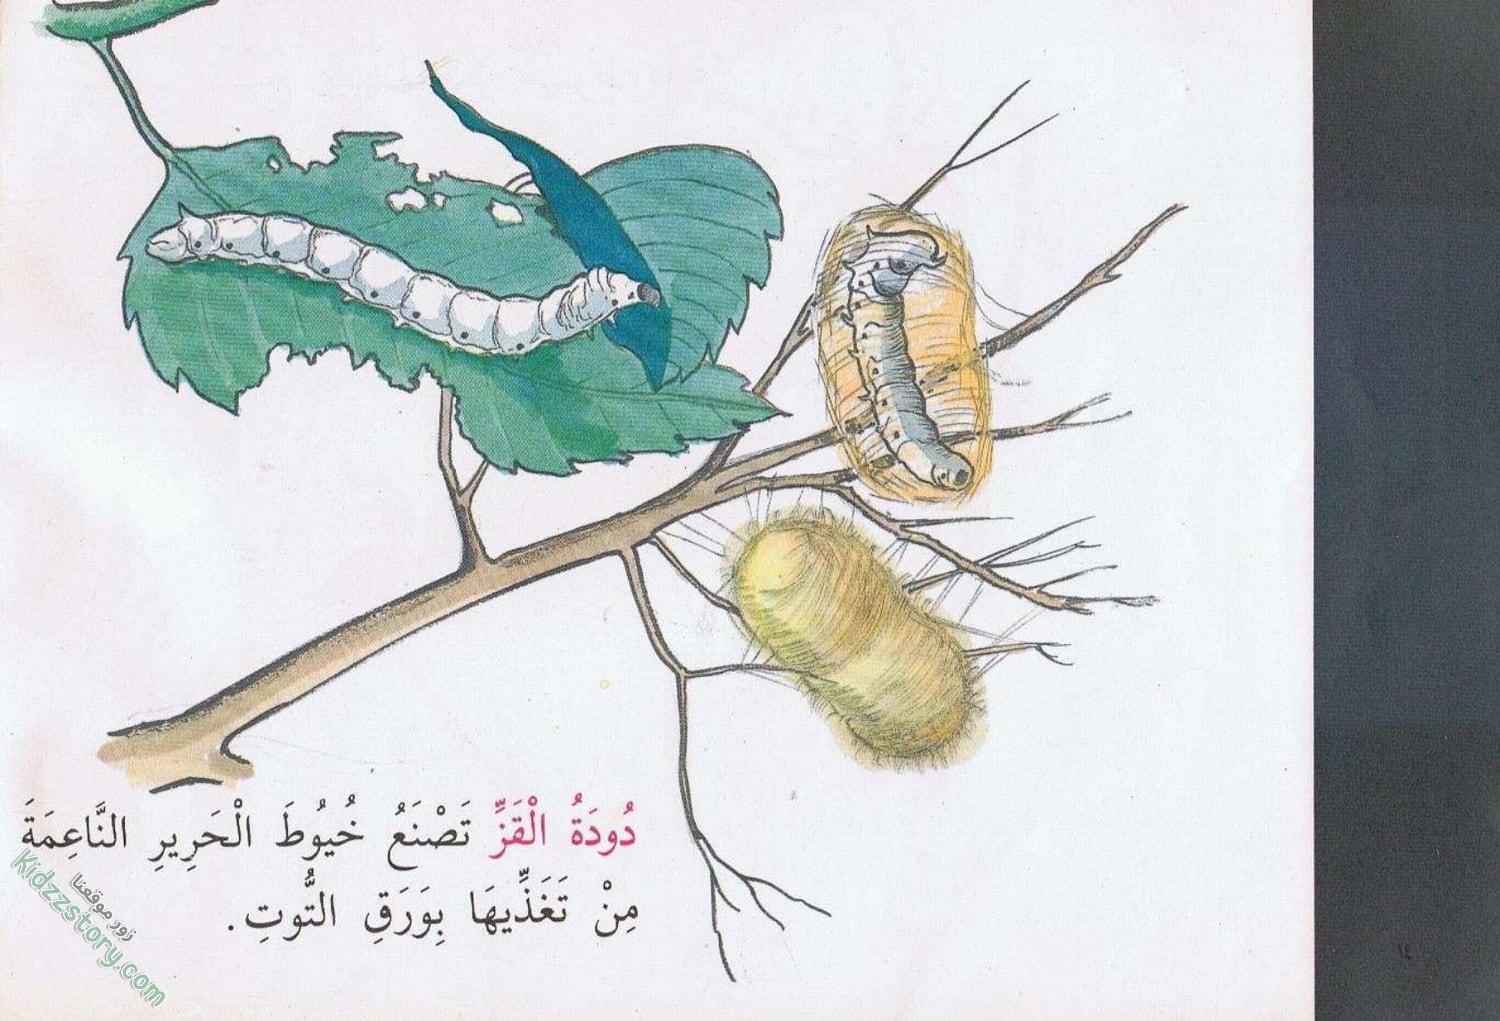 دُودَةُ الْقَزِّ تَصْنَعُ خُيُوطَ الْحَرِيرِ النَّاعِمَةَ
مِنْ تَغَذِّيهَا بِوَرَقِ التُّوتِ.
زور موقعنا
Kidzzstory.com
١٤